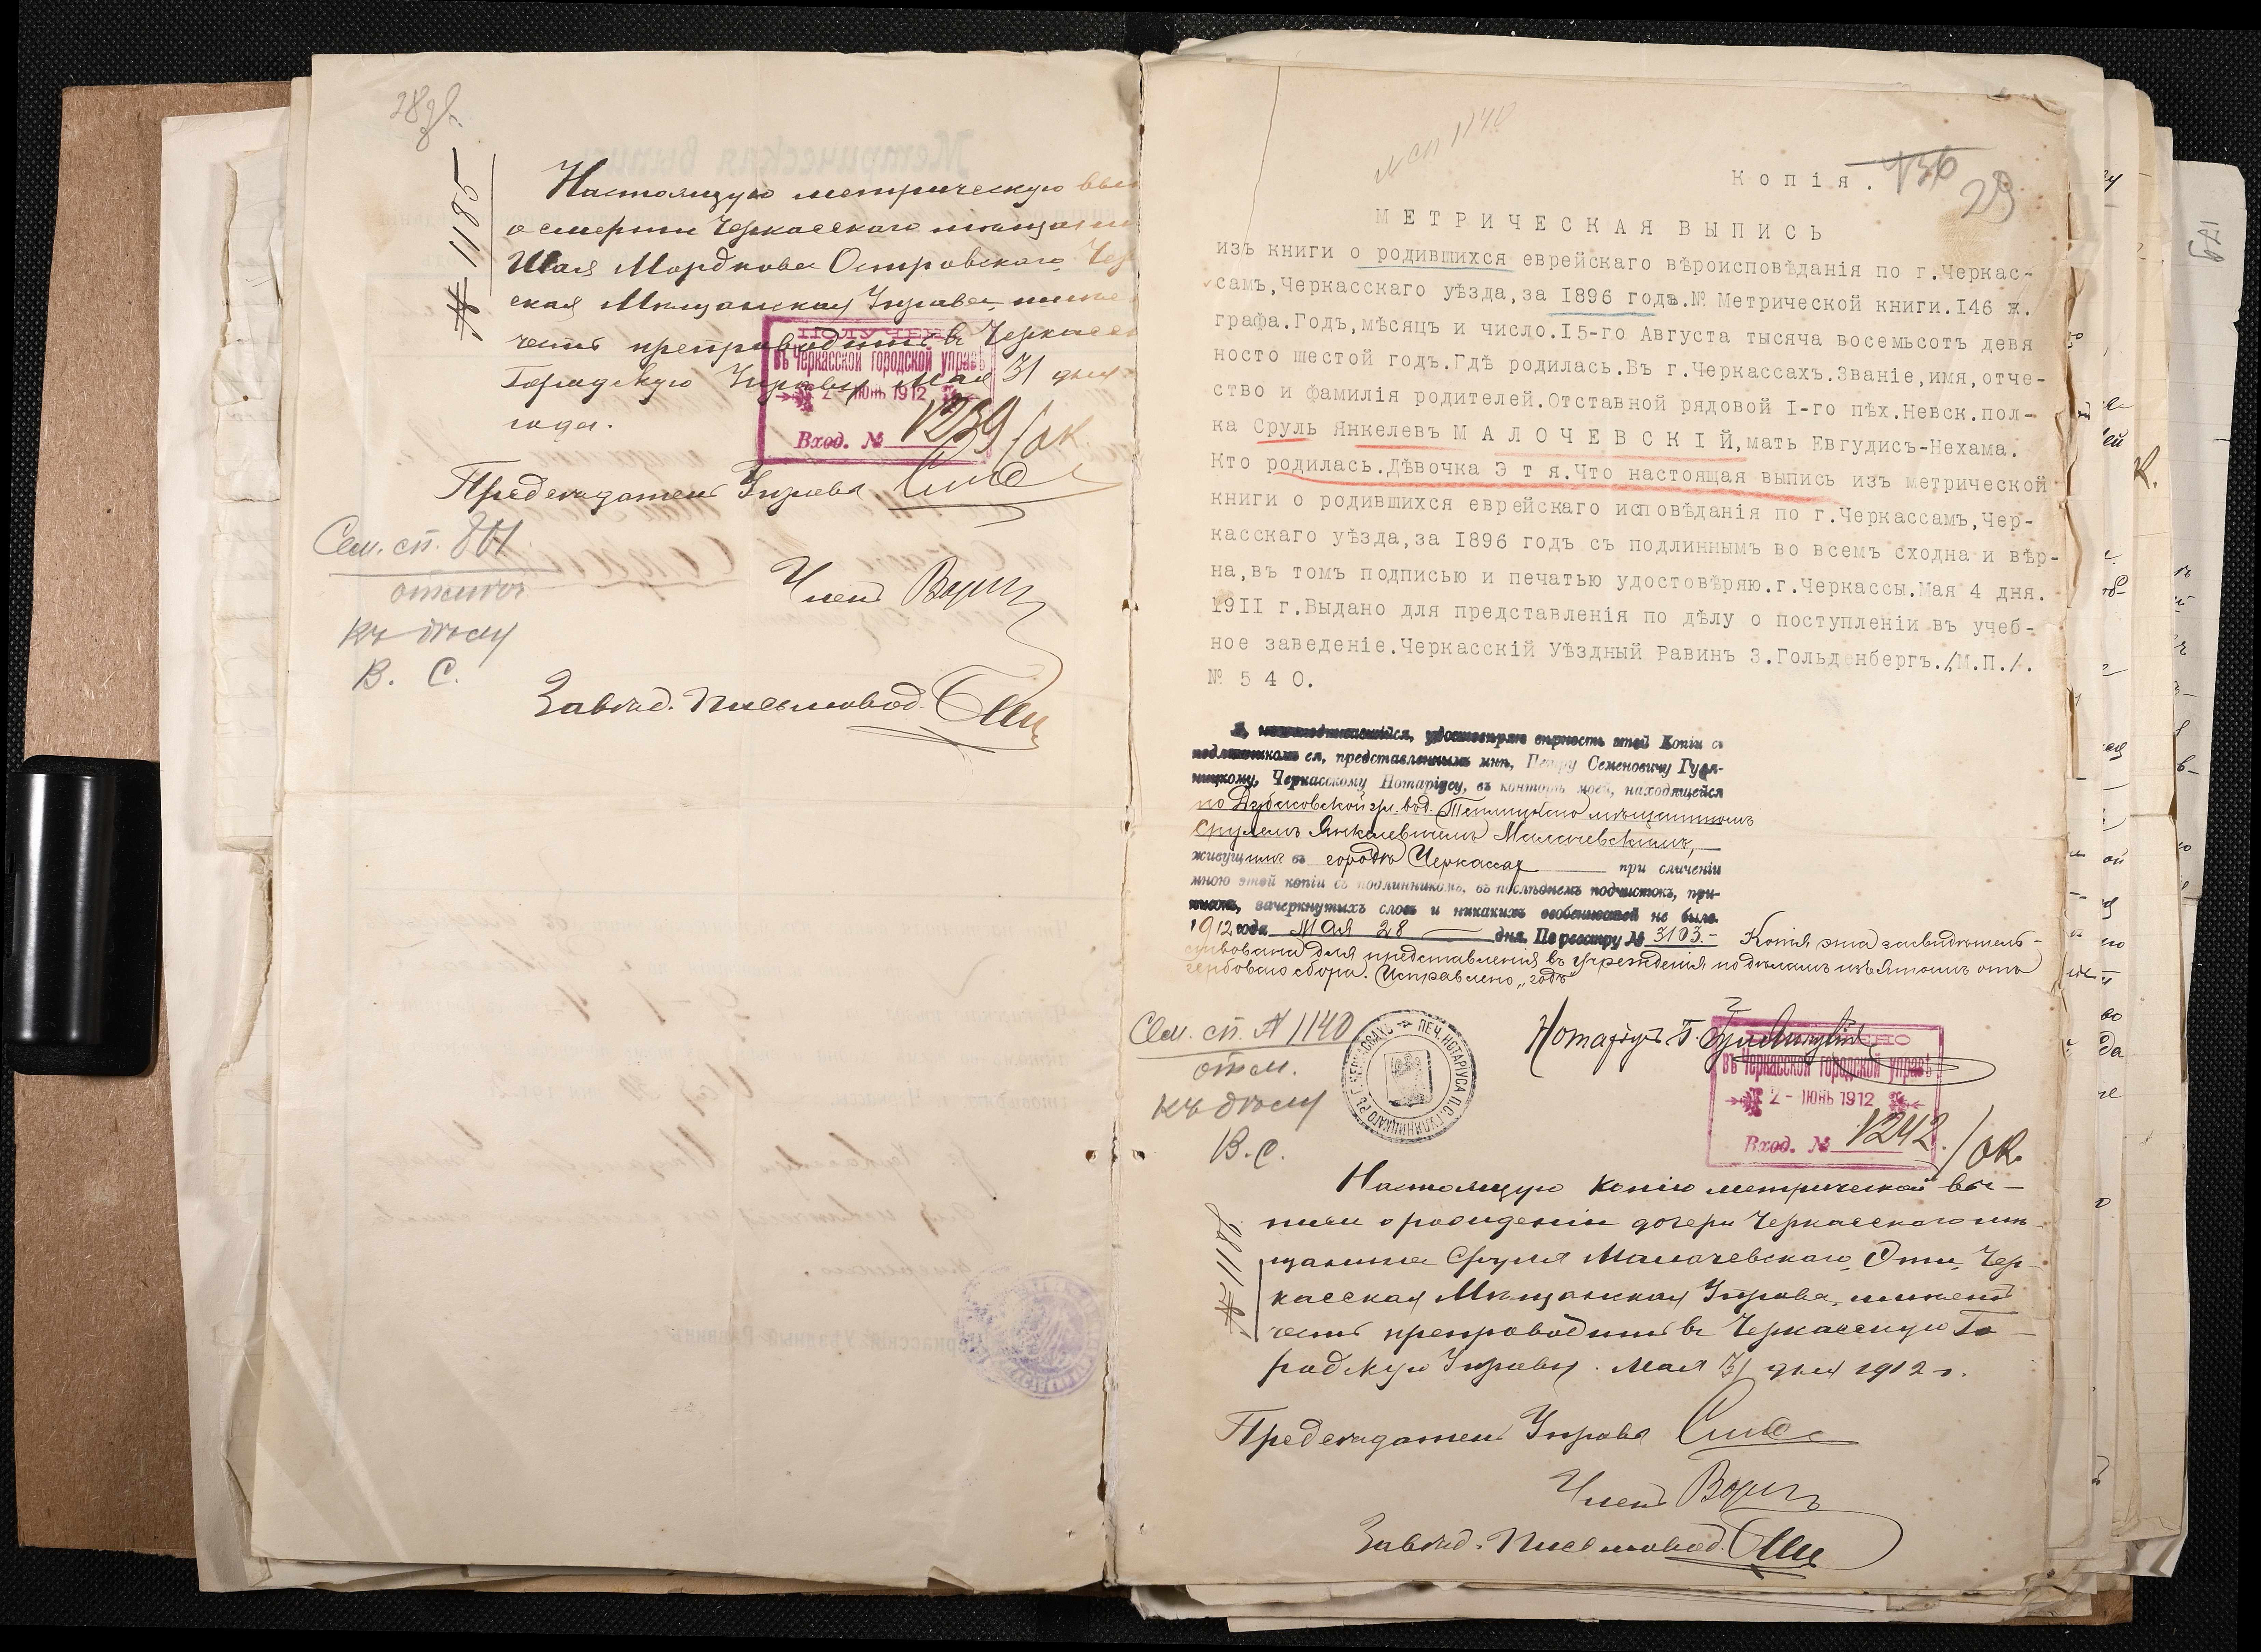 28 об.
№ 1185
Настоящую метрическую вы
о смерти Черкасскаго мѣщани
Шая Мордкова Островскаго, Чер
ская Мѣщанская Управа, имѣе
честь препроводить въ Черкасс
Городскую Управу Мая 31 дня
года.
ПОЛУЧЕНО
въ Черкасской городской управѣ
2 - ІЮНЬ 1912
Вход. № 1239/ок.
Предсѣдатель Управы
Членъ
Завѣд. Письмовод.
Сем. сп. 801
отмѣч
къ дѣлу
В. С.
сп 1140
Копія. 136
29
МЕТРИЧЕСКАЯ ВЫПИСЬ
изъ книги о родившихся еврейскаго вѣроисповѣданія по г.Черкас-
самъ,Черкасскаго уѣзда,за 1896 годъ.№ Метрической книги.146 ж.
графа.Годъ,мѣсяцъ и число.15-го Августа тысяча восемьсотъ девя
носто шестой годъ.Гдѣ родилась.Въ г.Черкассахъ.Званіе,имя,отче-
ство и фамилія родителей.Отставной рядовой I-го пѣх.Невск.пол-
ка Сруль Янкелевъ МАЛОЧЕВСКІЙ,мать Евгудисъ-Нехама.
Кто родилась.Дѣвочка Э т я.Что настоящая выпись изъ метрической
книги о родившихся еврейскаго исповѣданія по г.Черкассамъ,Чер-
касскаго уѣзда,за 1896 годъ съ подлиннымъ во всемъ сходна и вѣр-
на,въ томъ подписью и печатью удостовѣряю.г.Черкассы.Мая 4 дня.
1911 г.Выдано для представленія по дѣлу о поступленіи въ учеб-
ное заведеніе.Черкасскій Уѣздный Равинъ З.Гольденбергъ./М.П./.
№ 540.
Я, нижеподписавшійся, удостовѣряю вѣрность этой Копіи съ
подлинникомъ ея, представленнымъ мнѣ, Петру Семеновичу Гуля-
ницкому, Черкасскому Нотаріусу, въ конторѣ моей, находящейся
по Дубасовской ул. вод. мѣщаниномъ
Срулемъ Янкелевичемъ Малочевскимъ,
живущимъ въ городѣ Черкассах при сличеніи
мною этой копіи съ подлинникомъ, въ послѣднемъ подчистокъ, при-
писокъ, зачеркнутыхъ словъ и никакихъ особенностей не было.
1912 года Мая 28 дня. По реестру № 3103.- Копія эта засвидѣтель-
ствована для представленія въ учрежденія по дѣламъ изъятымъ отъ
гербоваго сбора. Исправлено „годъ"
Нотаріусъ П. Гуляницкій
ПЕЧ. НОТАРІУСА П.С. ГУЛЯНИЦКАГО ВЪ Г. ЧЕРКАССАХЪ
ПОЛУЧЕНО
въ Черкасской городской управѣ
2 - ІЮНЬ 1912
Вход. № 1242/ок.
Сем. сп. № 1140
отм.
къ дѣлу
В. С.
№ 1182
Настоящую копію метрической вы-
писи о рожденіи дочери Черкасскаго мѣ-
щанина Сруля Малочевскаго, Эти, Чер-
касская Мѣщанская Управа, имѣетъ
честь препроводить въ Черкасскую Го-
родскую Управу. Мая 31 дня 1912 г.
Предсѣдатель Управы
Членъ
Завѣд. Письмовод.